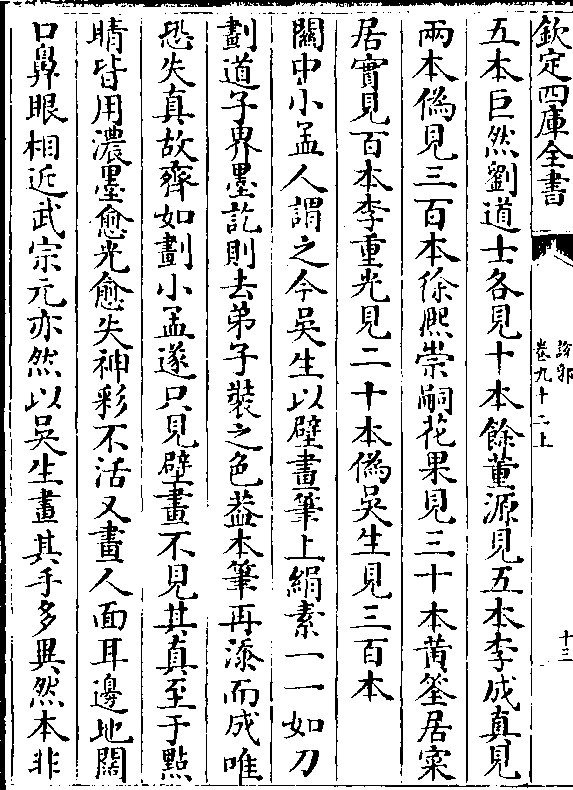 欽定四庫全書
說郛
卷九十二上
十三
五本巨然劉道士各見十本餘董源見五本李成真見
兩本偽見三百本徐熙崇嗣花果見三十本黃筌居寀
居寶見百本李重光見二十本偽吳生見三百本
關中小孟人謂之今吳生以壁畫筆上絹素一一如刀
劃道子界墨訖則去弟子裝之色葢本筆再添而成唯
恐失真故齊如劃小孟遂只見壁畫不見其真至于點
睛皆用濃墨愈光愈失神彩不活又畫人面耳邊地闊
口鼻眼相近武宗元亦然以吳生畫其手多異然本非